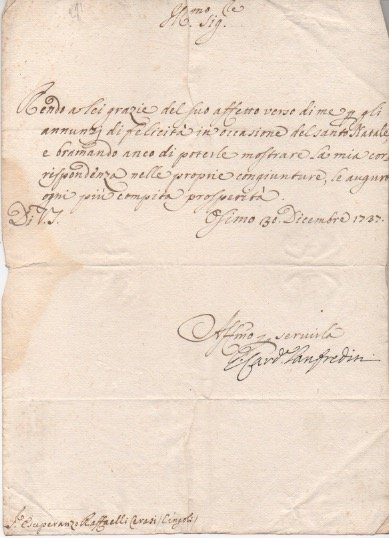 M.mo Sig.re
Rendo a lei grazie del suo affetto verso di me p gli
annunzj di felicità in occasione del santo Natale
e bramando anco di poterle mostrare la mia cor
rispondenza nelle proprie congiunture, le auguro
ogni più compita prosperità.
Di V.S. Osimo 30. Dicembre 1737.
Affmo p servirla
Card. Lanfredini
Esuperanzo Raffaelli Cerasi (Cingoli)